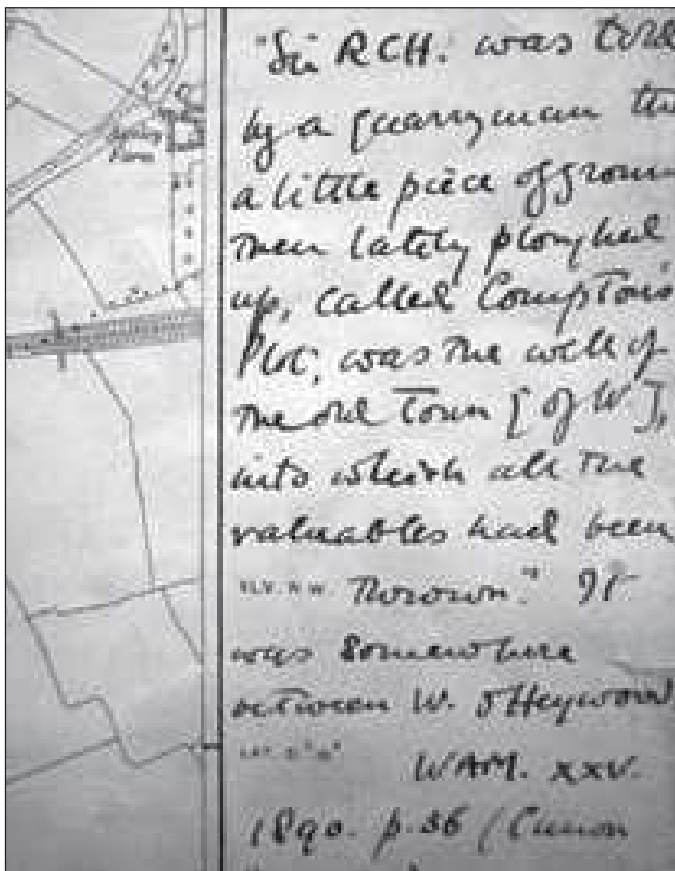 "Sir RCH. was told
by a quarryman
a little piece of groun
then lately ploughed
up, called Compton's
Plot, was the well of
the old Town [of W],
into which all the
valuables had been
thrown." It
was somewhere
between W. & Heywood
WAM. XXV.
1890. p. 36 (Canon
Farm